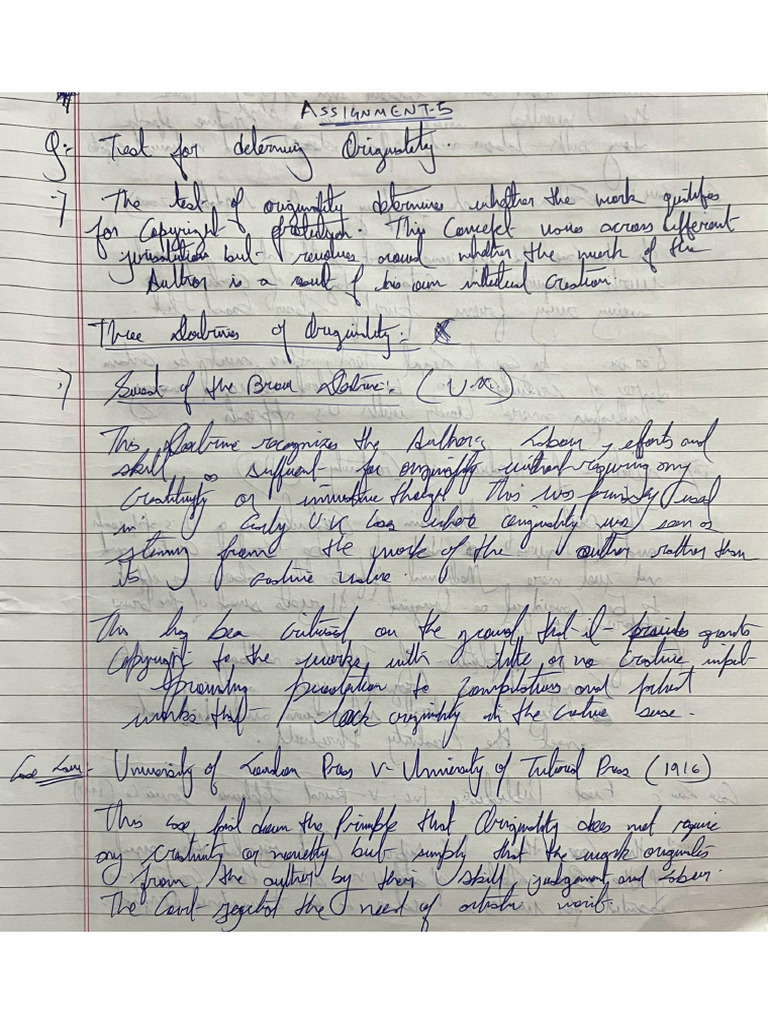 ASSIGNMENT-5
Q:- Test for determing Originality.
→ The test of originality determines whether the work qualifies
for Copyright protection. This Concept varies across different
jurisdictions but revolves around whether the work of the
Author is a result of his own intellectual creation.
Three Doctrines of Originality:-
→ Sweat of the Brow Doctrine:- (U.K)
This Doctrine recognizes the Author's Labour, efforts and
skill as sufficent for originality without requiring any
Creativity or thought. This was primarily used
in Early U.K Cases where originality was seen as
stemming from the work of the author rather than
its creative value.
This has been criticised on the ground that it grants
Copyright to the works with little or no creative input
providing protection to compilations and
works that lack originality in the creative sense.
Case Law:- University of London Press V- University of Tutorial Press (1916)
This case laid down the Principle that Originality does not require
any creativity or novelty but simply that the work originates
from the author by their skill, judgement and labour.
The Court rejected the need of artistic merit.